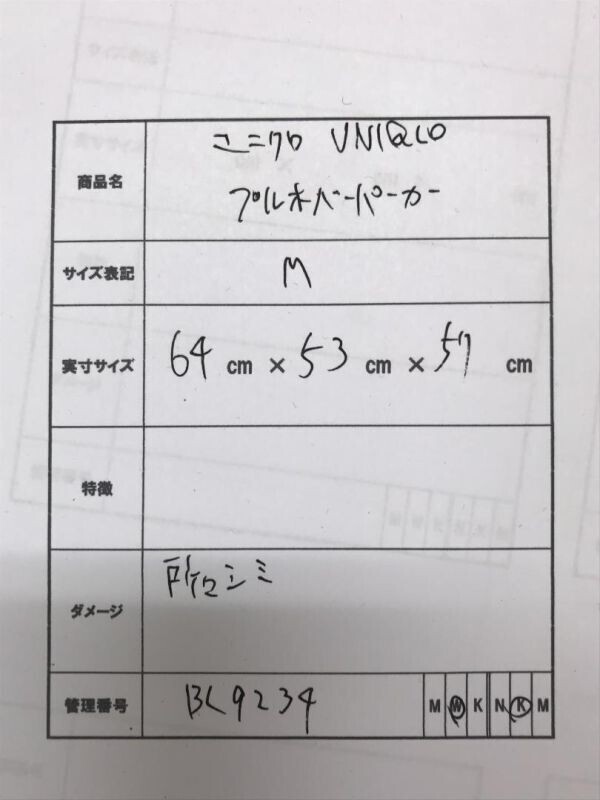 商品名 ユニクロ UNIQLO
プルオーバーパーカー
サイズ表記 M
実寸サイズ 64 cm × 53 cm × 57 cm
特徴
ダメージ 所々シミ
管理番号 BC9234 M W K N K M